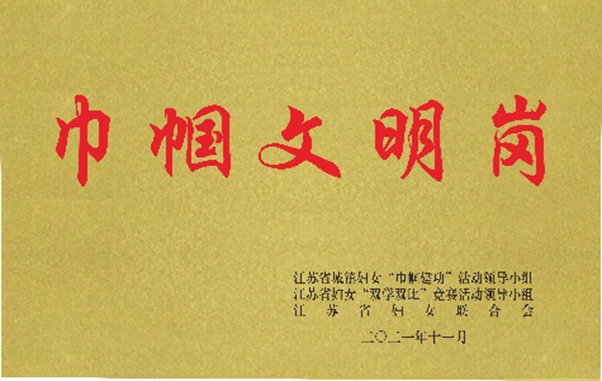 巾帼文明岗
江苏省城镇妇女“巾帼建功”活动领导小组
江苏省妇女“双学双比”竞赛活动领导小组
江苏省妇女联合会
二〇二一年十一月